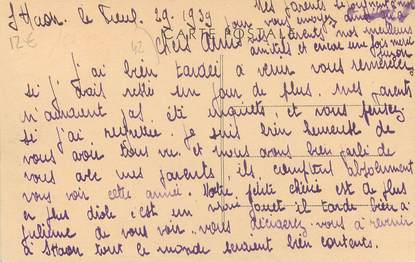 St Haon. le 1939
Mes parents se joignent à moi
pour vous envoyer ainsi qu'à
vos parents nos meilleurs
amitiés et encore une fois merci
Suzon
12 €
CARTE POSTALE
Chers Amis
J'ai bien tardée a venir vous remercier
si j'était resté un jour de plus. mes parents
n'auraient pas été inquiets, et vous pensez
si j'ai Je suis bien heureuse de
vous avoir tous vu. et nous avons bien parlé de
vous avec mes parents, ils comptent absolument
vous voir cette année. Notre petite chérie est de plus
en plus c'est un vrai jouet il tarde bien à
julienne de vous voir. vous décidez-vous à revenir
à St Haon tout le monde seraient bien contents.